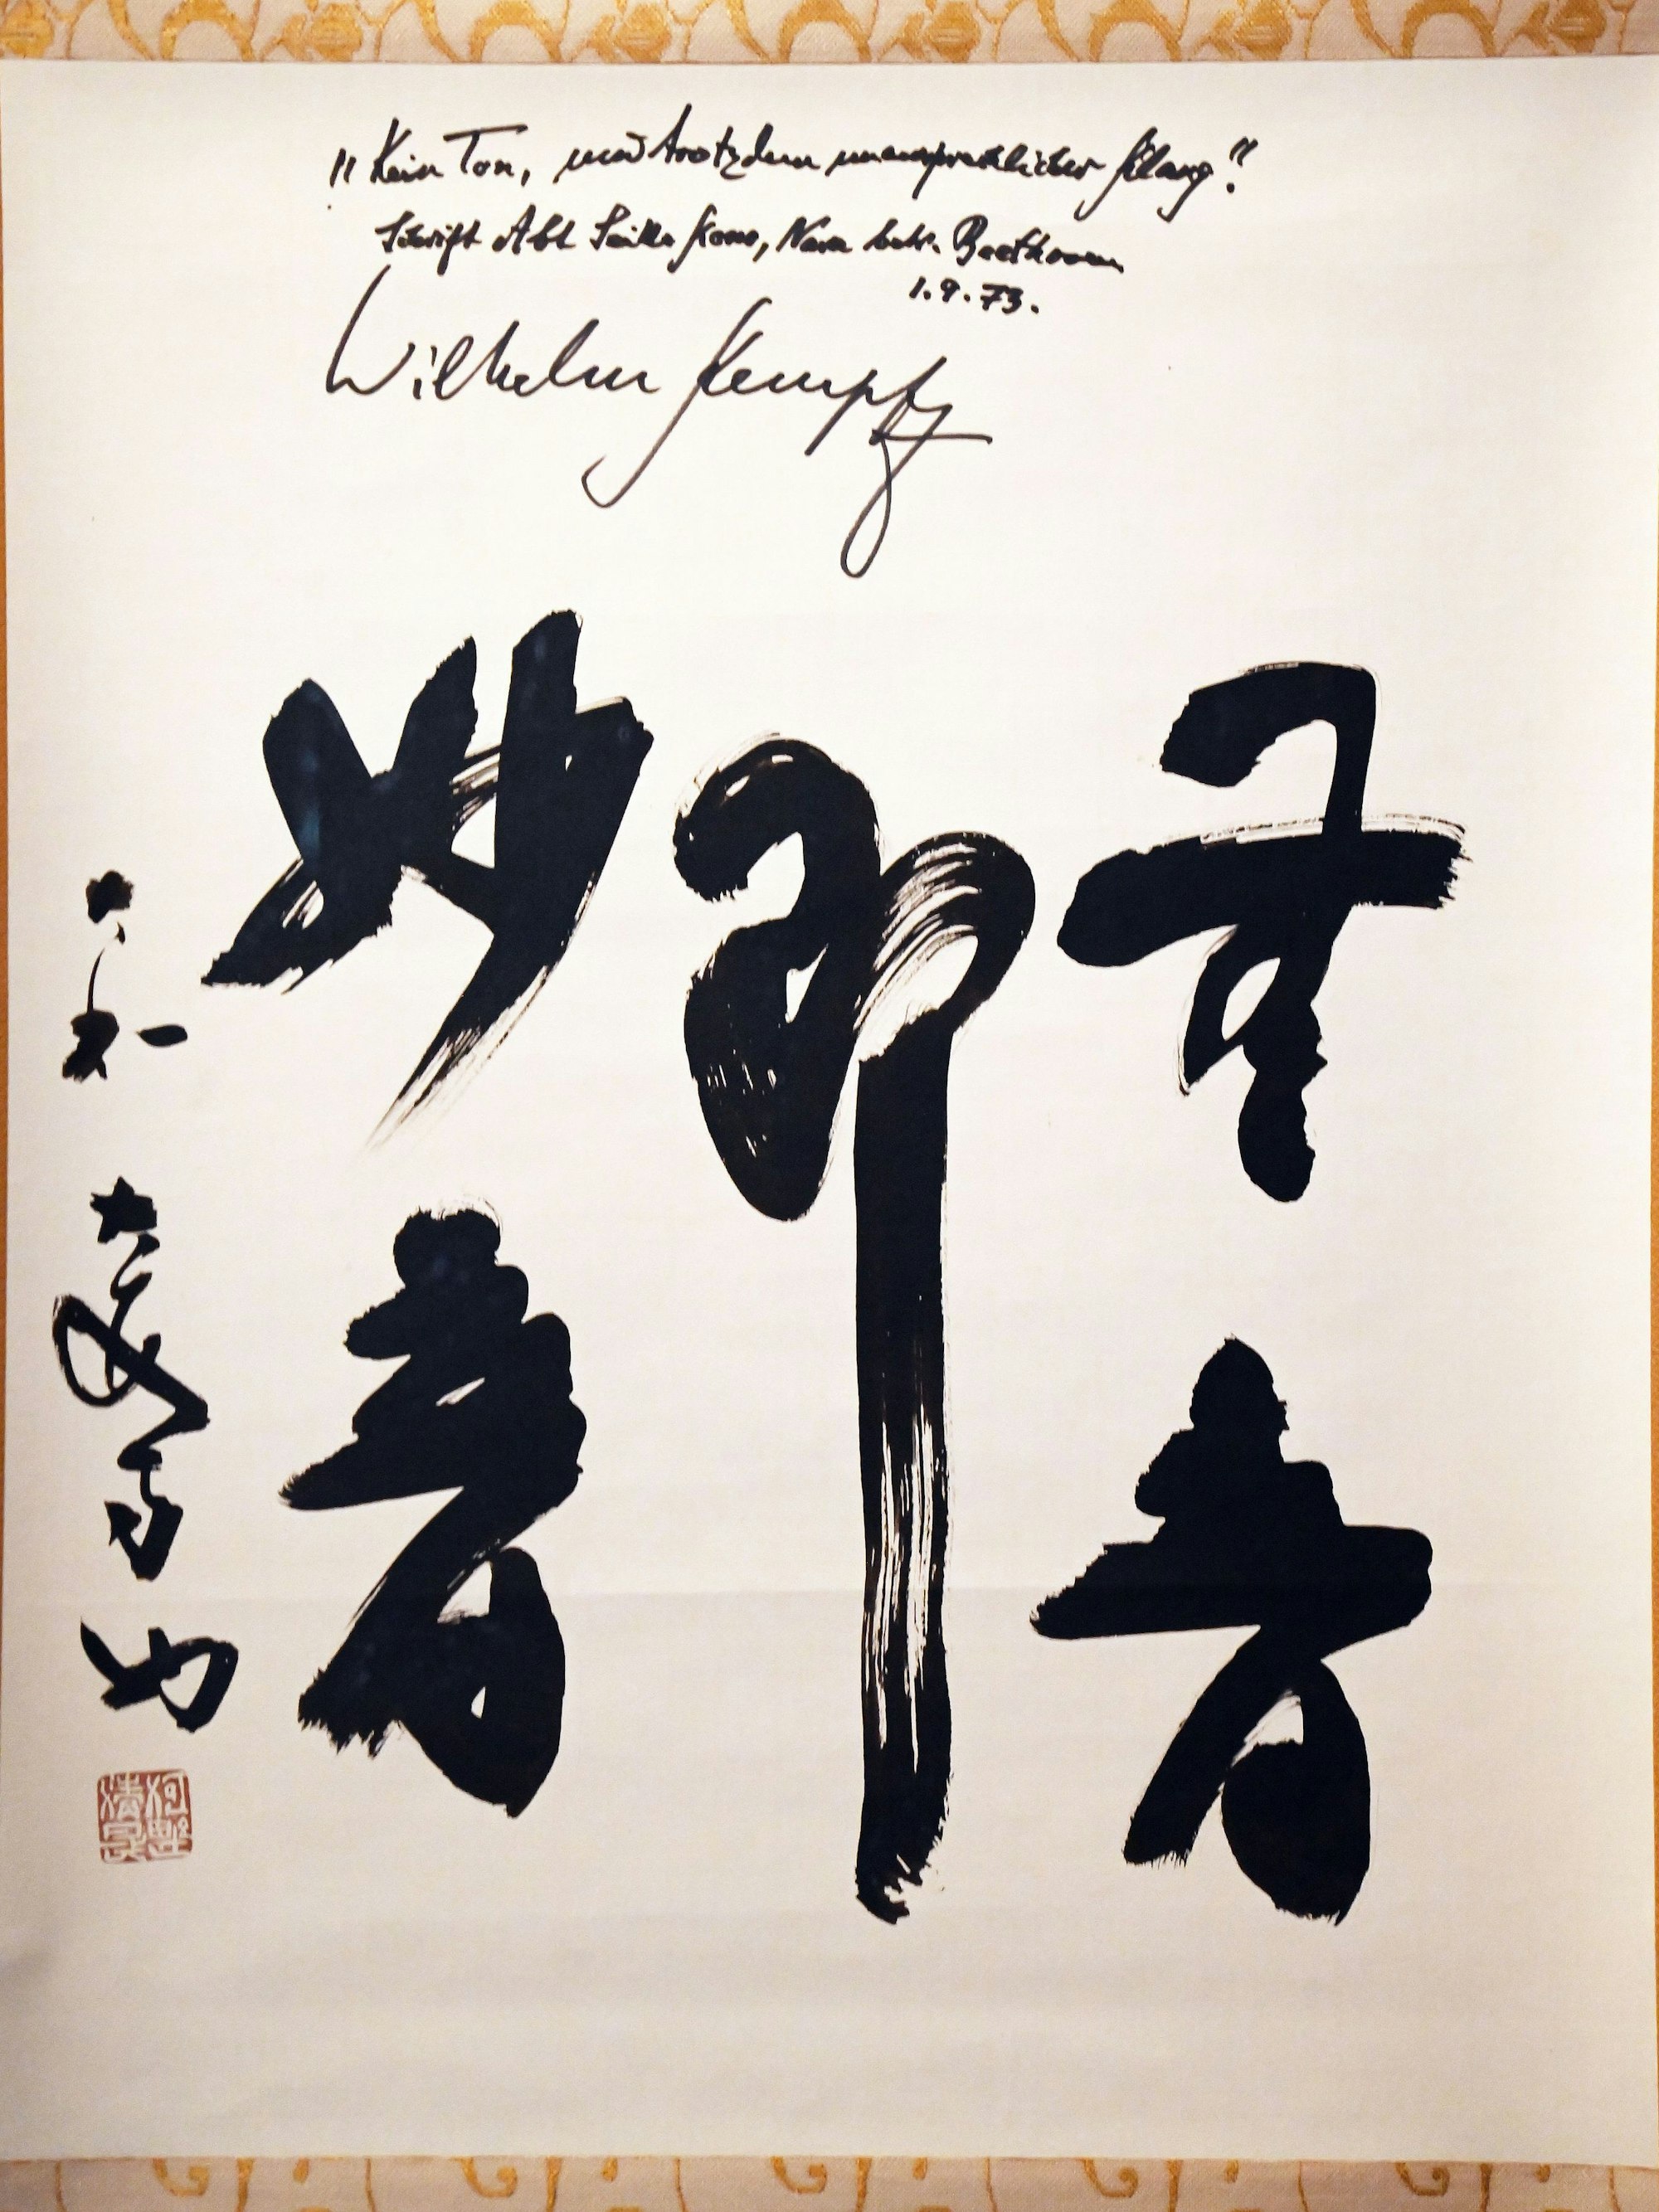 „Kein Ton, und trotzdem unaussprechlicher Klang“
Schrift Abt Seiko Kono, Nara betr. Beethoven
1.9.73.
Wilhelm Kempff
無音
即
妙音
大和 大安寺
河野
清晃